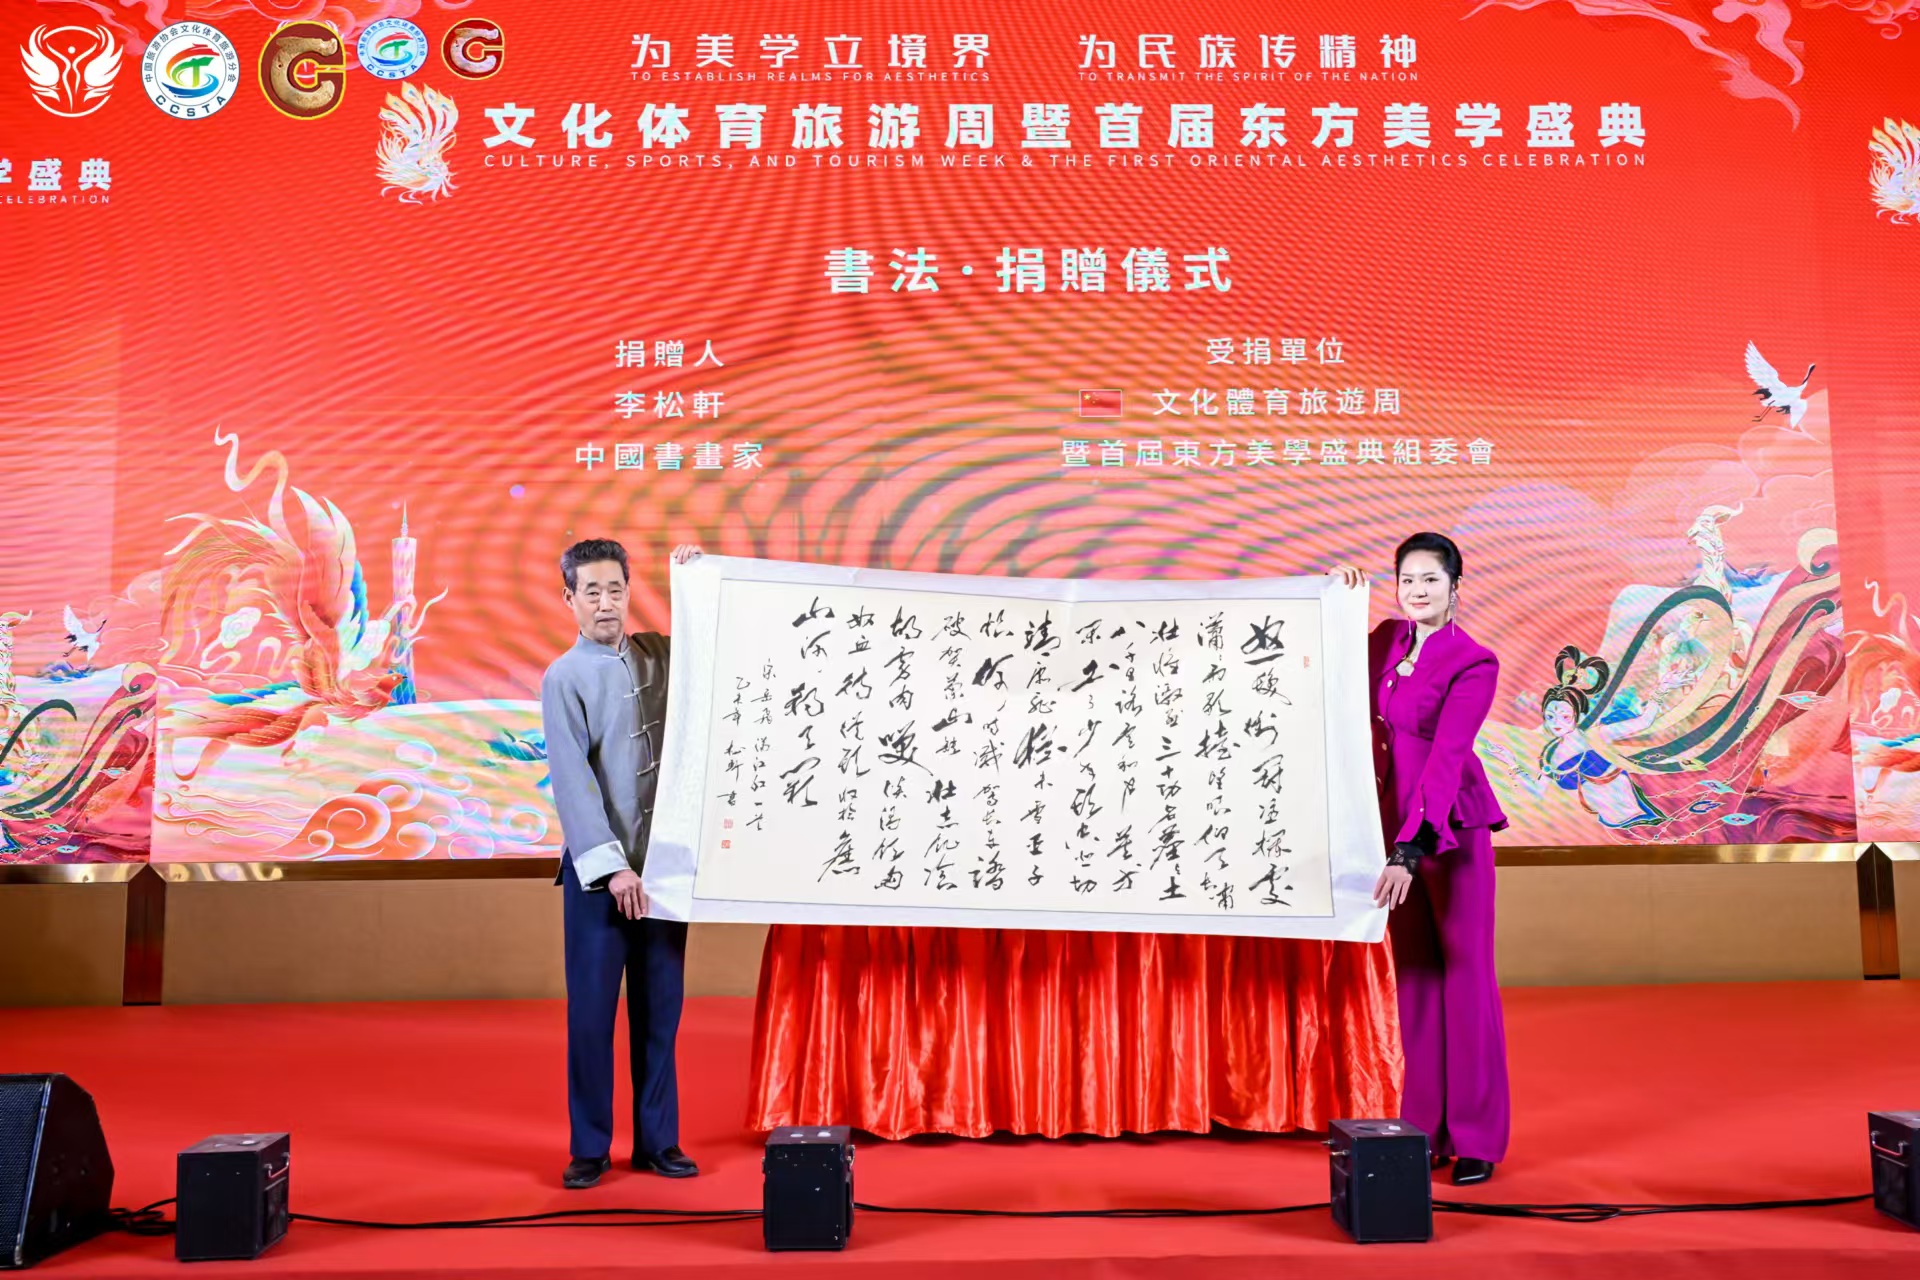 为美学立境界 为民族传精神
TO ESTABLISH REALMS FOR AESTHETICS TO TRANSMIT THE SPIRIT OF THE NATION
文化体育旅游周暨首届东方美学盛典
CULTURE, SPORTS, AND TOURISM WEEK & THE FIRST ORIENTAL AESTHETICS CELEBRATION
中国旅游协会文化体育旅游分会
CCSTA
CCSTA
学盛典
CELEBRATION
書法·捐贈儀式
捐贈人
李松軒
中國書畫家
受捐單位
文化體育旅遊周
暨首屆東方美學盛典組委會
怒髮衝冠凭欄處
瀟瀟雨歇抬望眼仰天長嘯
壯懷激烈三十功名塵土
八千里路雲和月莫等
閑白了少年頭空悲切
靖康恥猶未雪臣子
恨何時滅駕長車踏
破賀蘭山缺壯志飢餐
胡虜肉笑談渴飲匈
奴血待從頭收拾舊
山河朝天闕
宋岳飛滿江紅一首
年松軒書